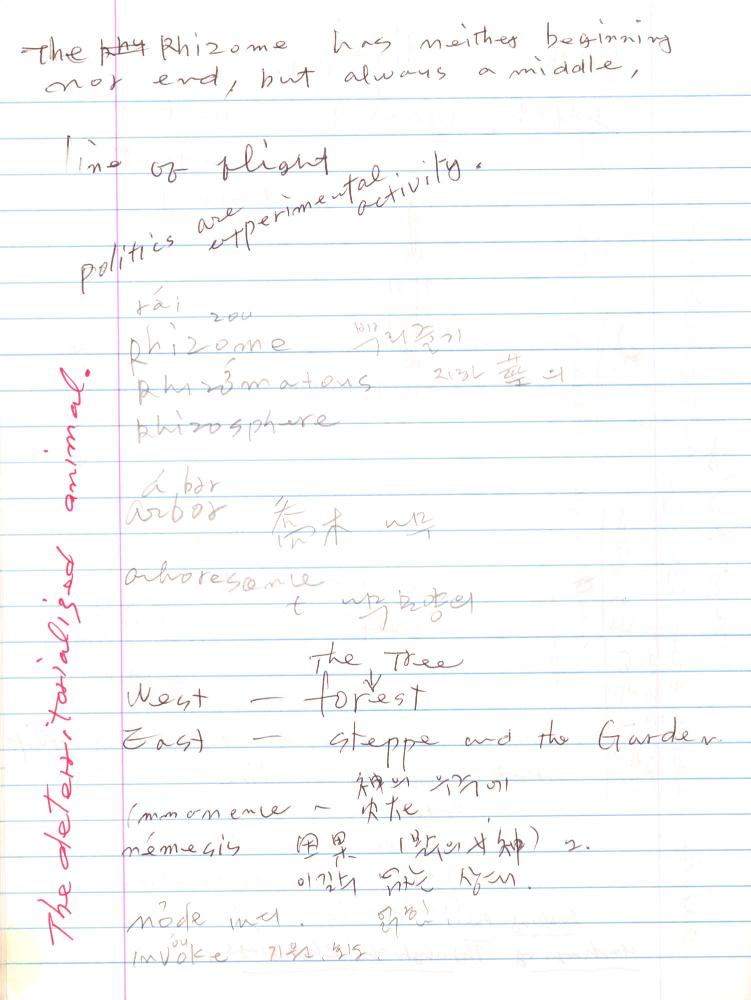 The Rhizome has neither beginning
nor end, but always a middle,
line of flight
politics are experimental activity.
rái zou
Rhizome 뿌리줄기
Rhizomatous 지하 莖의
Rhizosphere
á bər
arbor 喬木 나무
arborescence
t 나무모양의
The Tree
↓
West — forest
East — steppe and the Garden.
神의 우주에
Immanence ~ 內在
némesis 因果 (벌의 女神) 2.
이길수 없는 상대.
The deterritorialized animal.
node
invoke 기원